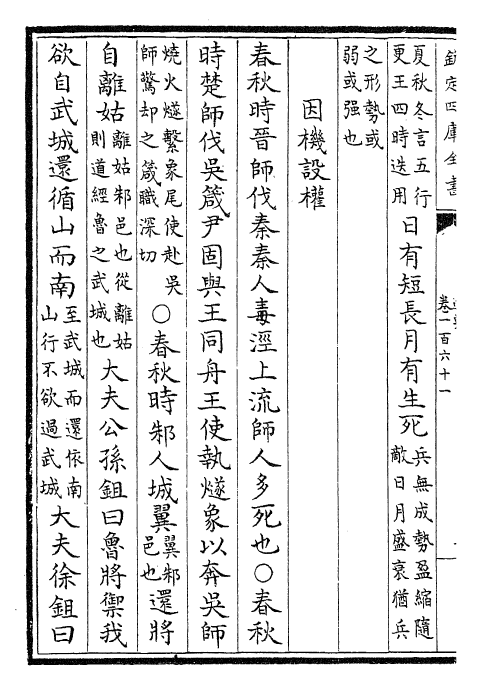 欽定四庫全書
卷一百六十一
夏秋冬言五行更王四時迭用日有短長月有生死兵無成勢盈縮隨敵日月盛衰猶兵
之形勢或弱或强也
因機設權
春秋時晉師伐秦秦人毒涇上流師人多死也○春秋
時楚師伐吳箴尹固與王同舟王使執燧象以奔吳師
燒火燧繫象尾使赴吳師驚却之箴職深切○春秋時邾人城翼翼邾邑也還將
自離姑離姑邾邑也從離姑則道經魯之武城也大夫公孫鉏曰魯將禦我
欲自武城還循山而南至武城而還依南山行不欲過武城大夫徐鉏曰